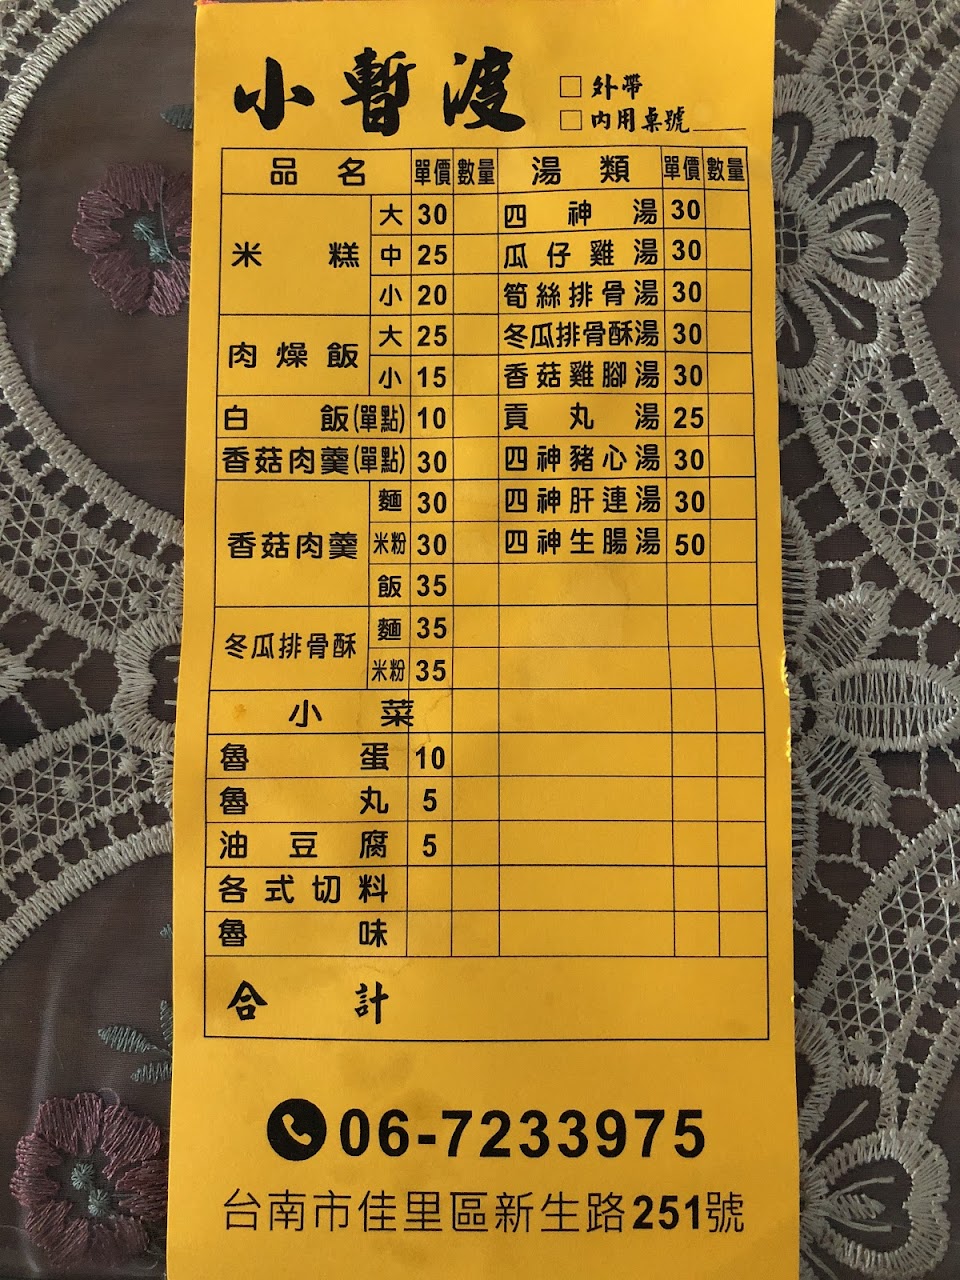 小暫渡
□外帶
□內用桌號____
品名 單價 數量 湯類 單價 數量
米糕 大 30 四神湯 30
中 25 瓜仔雞湯 30
小 20 筍絲排骨湯 30
肉燥飯 大 25 冬瓜排骨酥湯 30
小 15 香菇雞腳湯 30
白飯(單點) 10 貢丸湯 25
香菇肉羹(單點) 30 四神豬心湯 30
香菇肉羹 麵 30 四神肝連湯 30
米粉 30 四神生腸湯 50
飯 35
冬瓜排骨酥 麵 35
米粉 35
小菜
魯蛋 10
魯丸 5
油豆腐 5
各式切料
魯味
合計
06-7233975
台南市佳里區新生路251號